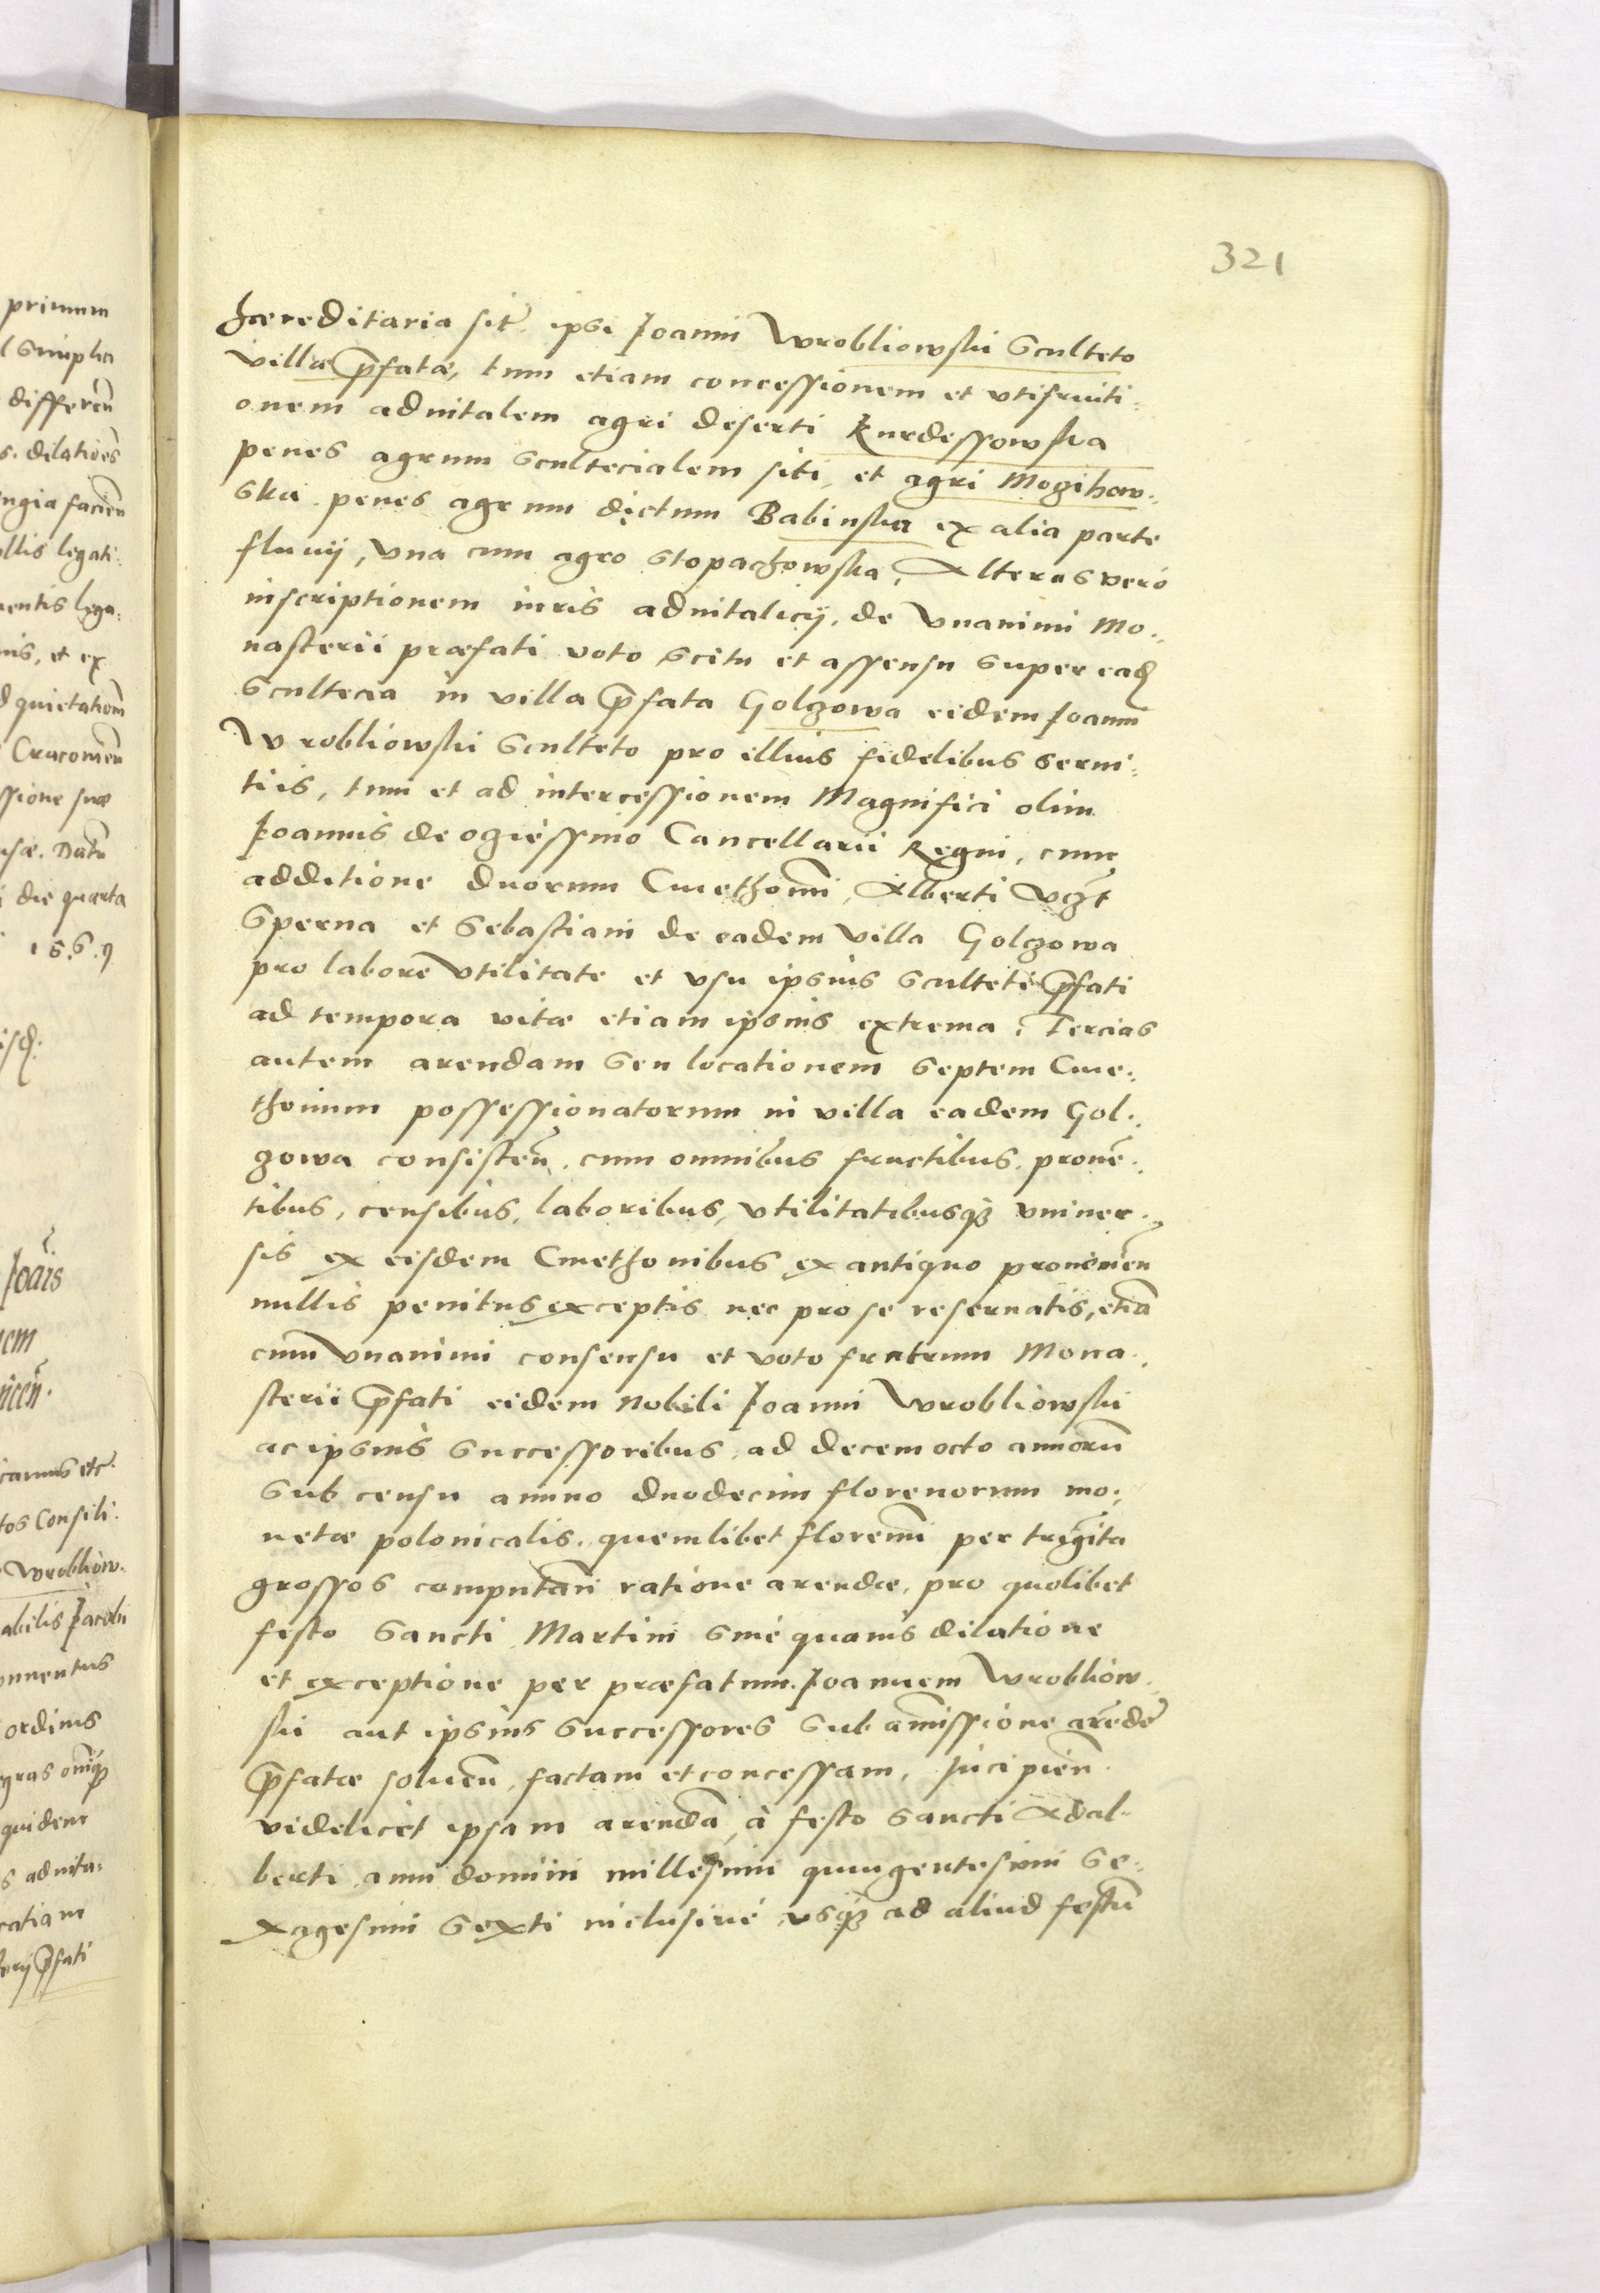 321
hæreditaria sit ipsi Joanni Wrobliowski Sculteto
villæ p̄fatæ, tum etiam concessionem et vtifruiti-
onem aduitalem agri deserti Kurdessowska
penes agrum scultecialem siti, et agri Mogihow-
ska penes agrum dictum Babinska ex alia parte
fluuij, vna cum agro Stopachowska, Alteras vero
inscriptionem iuris aduitalicij, de vnanimi Mo-
nasterii præfati voto scitu et assensu super eadē
Scultecia in villa p̄fata Golczowa eidem Joanni
Wrobliowski Sculteto pro illius fidelibus serui-
tiis, tum et ad intercessionem Magnifici olim
Joannis de ogiessino Cancellarii Regni, cum
additione duorum Cmethonū, Alberti vczt
Sperna et Sebastiani de eadem villa Golczowa
pro labore vtilitate et vsu ipsius sculteti p̄fati
ad tempora vitæ etiam ipsius extrema. Tercias
autem arendam seu locationem septem Cme-
thonum possessionatorum in villa eadem Gol-
zowa consisteñ. cum omnibus fructibus, prouē-
tibus, censibus, laboribus, vtilitatibusq̃ vniuer-
sis ex eisdem Cmethonibus ex antiquo prouenieñ
nullis penitus exceptis nec pro se reseruatis, etiā
cum vnanimi consensu et voto fratrum Mona-
sterii p̄fati eidem nobili Joanni Wrobliowski
ac ipsius successoribus, ad decem octo annorū
sub censu annuo duodecim florenorum mo-
netæ polonicalis, quemlibet florenū per trigīta
grossos computañ ratione arendæ, pro quolibet
festo Sancti Martini sine quauis dilatione
et exceptione per præfatum Joannem Wrobliow-
ski aut ipsius successores sub amissione arēdē
p̄fatæ solueñ, factam et concessam, Jncipieñ
videlicet ipsam arendā, à festo Sancti Adal-
berti anni domini millesimi quingentesimi Se-
xagesimi sexti inclusiuè, vsq̃ ad aliud festū